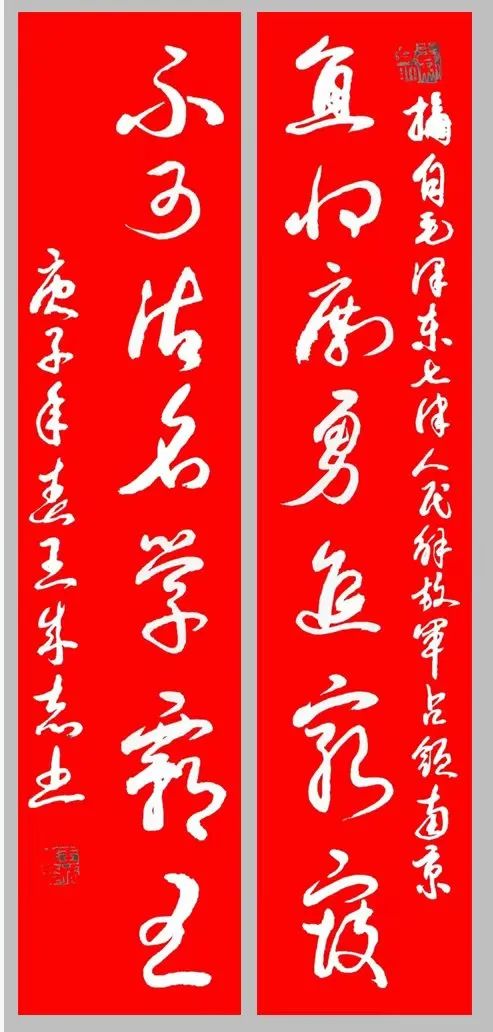 摘自毛泽东七律人民解放军占领南京
宜将剩勇追穷寇
不可沽名学霸王
庚子年春王成志书